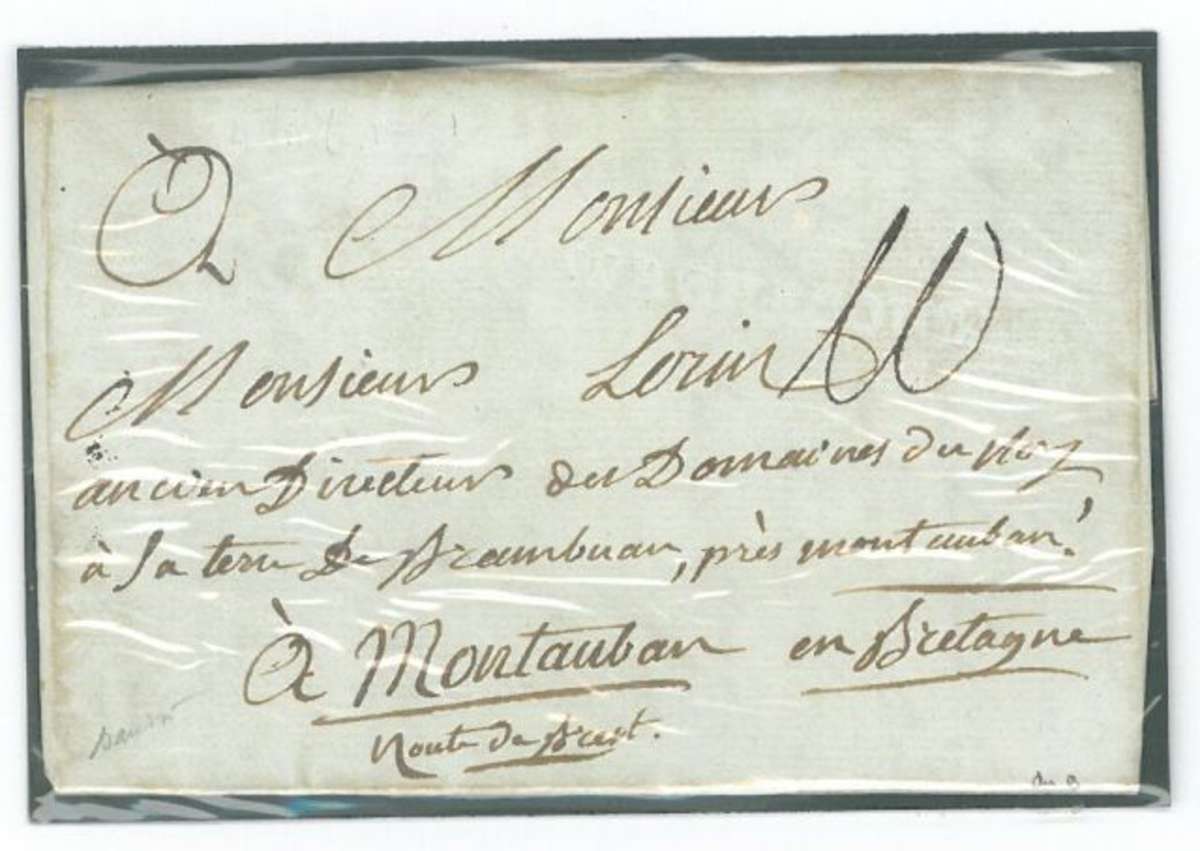 À Monsieur
Monsieur Lorin
ancien Directeur des Domaines du Roy
à Sa terre De Brambuan, près montauban.
À Montauban en Bretagne
Route de Brest.